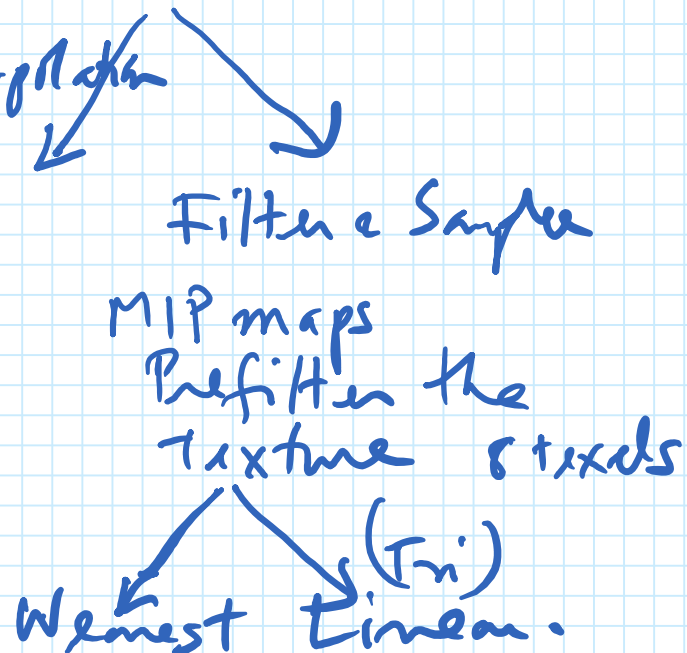 Filter Sample
MIP maps
Prefilter the
Texture 8 texels
(Tri)
Nearest Linear.